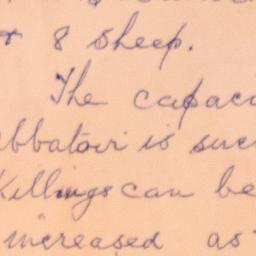 & 8 sheep.
The capaci
abbatoir is suc
Killings can be
increased as